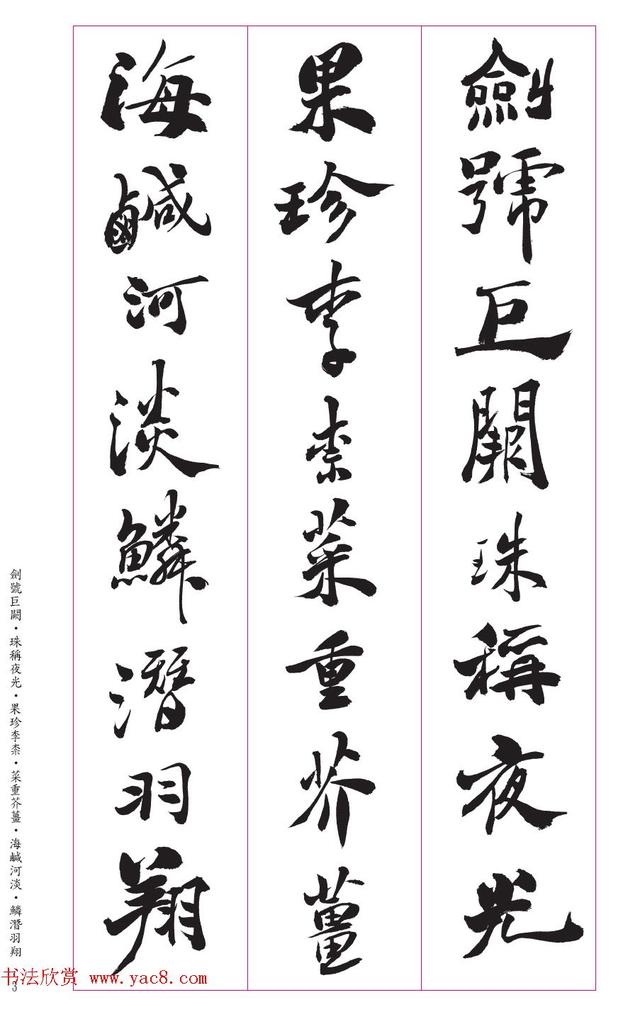 劍號巨闕珠稱夜光
果珍李柰菜重芥薑
海鹹河淡鱗潛羽翔
劍號巨闕・珠稱夜光・果珍李柰・菜重芥薑・海鹹河淡・鱗潛羽翔
书法欣赏 www.yac8.com
3